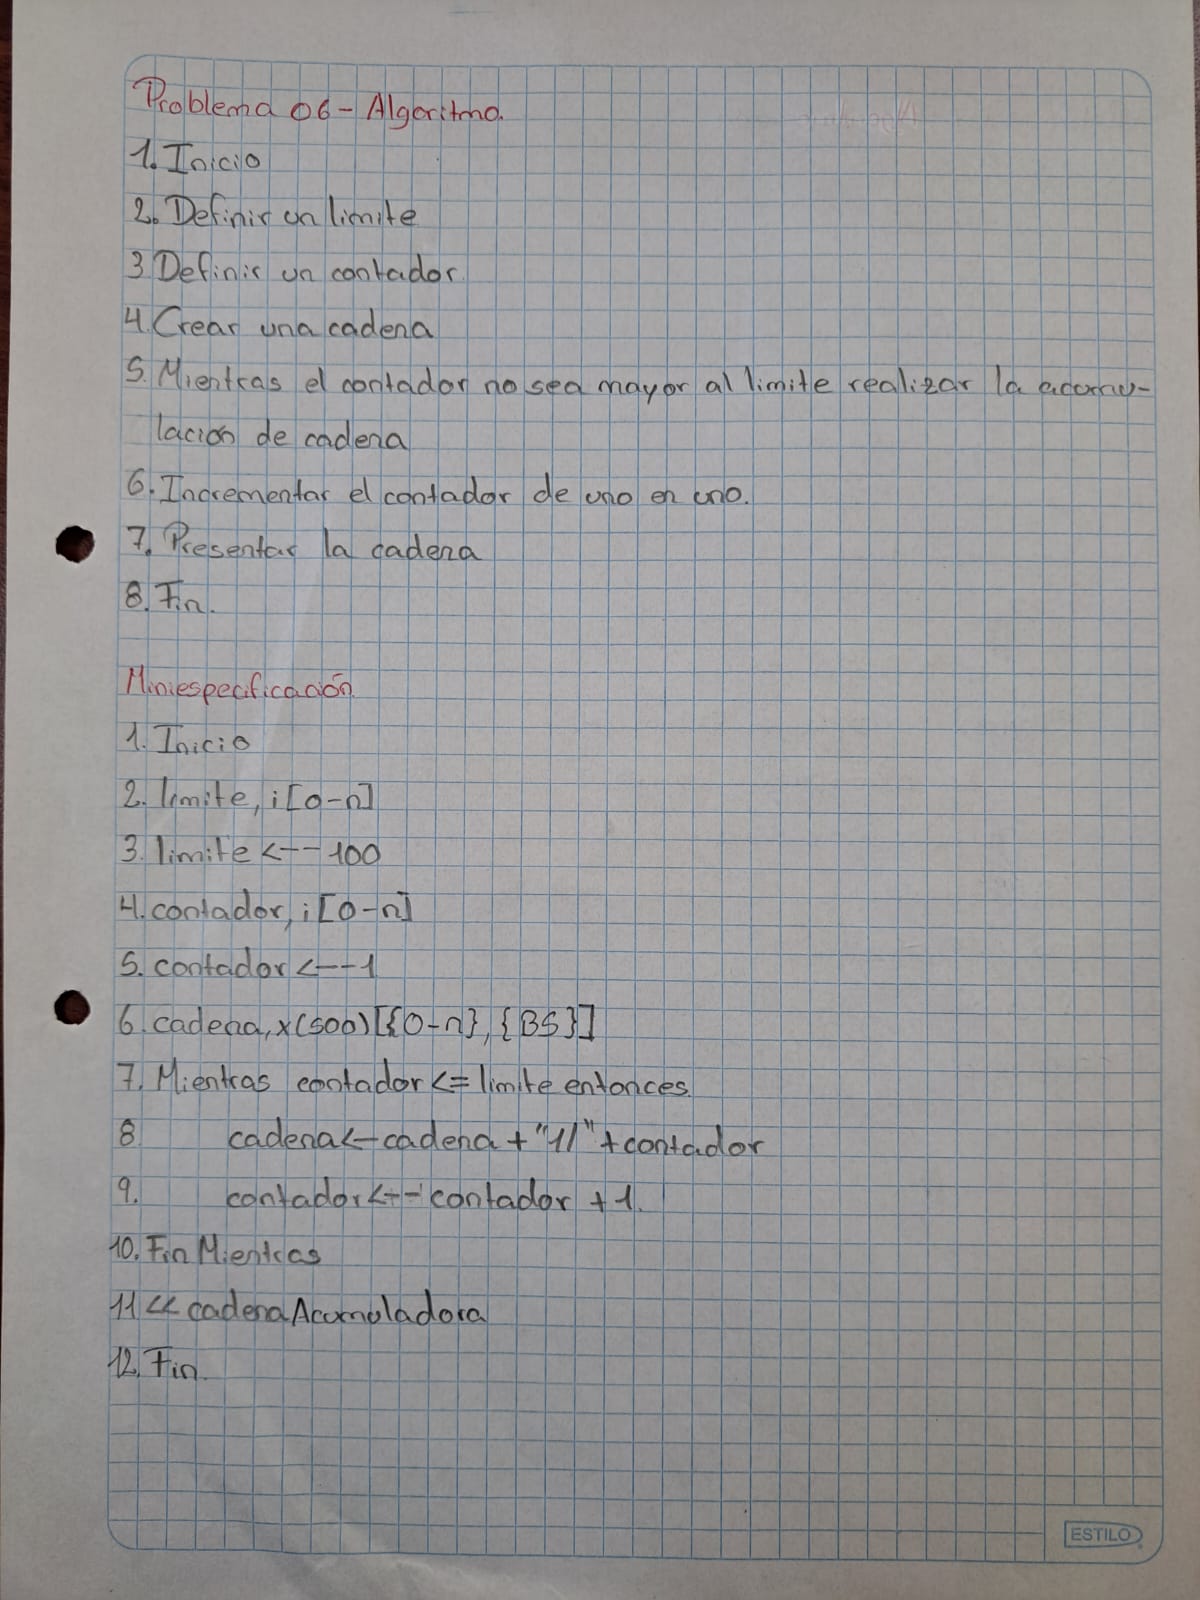 Problema 06 - Algoritmo.
1. Inicio
2. Definir un limite
3 Definir un contador.
4. Crear una cadena
5. Mientras el contador no sea mayor al limite realizar la acomu-
lación de cadena
6. Incrementar el contador de uno en uno.
7. Presentar la cadena
8. Fin.
Miniespecificación
1. Inicio
2. limite, i [0-n]
3. limite <-- 100
4. contador, i [0-n]
5. contador <-- 1
6. cadena, x(500) [{0-n}, {BS}]
7. Mientras contador <= limite entonces.
8. cadena <- cadena + "1/" + contador
9. contador <-- contador + 1.
10. Fin Mientras
11 << cadenaAcumuladora
12. Fin.
ESTILO